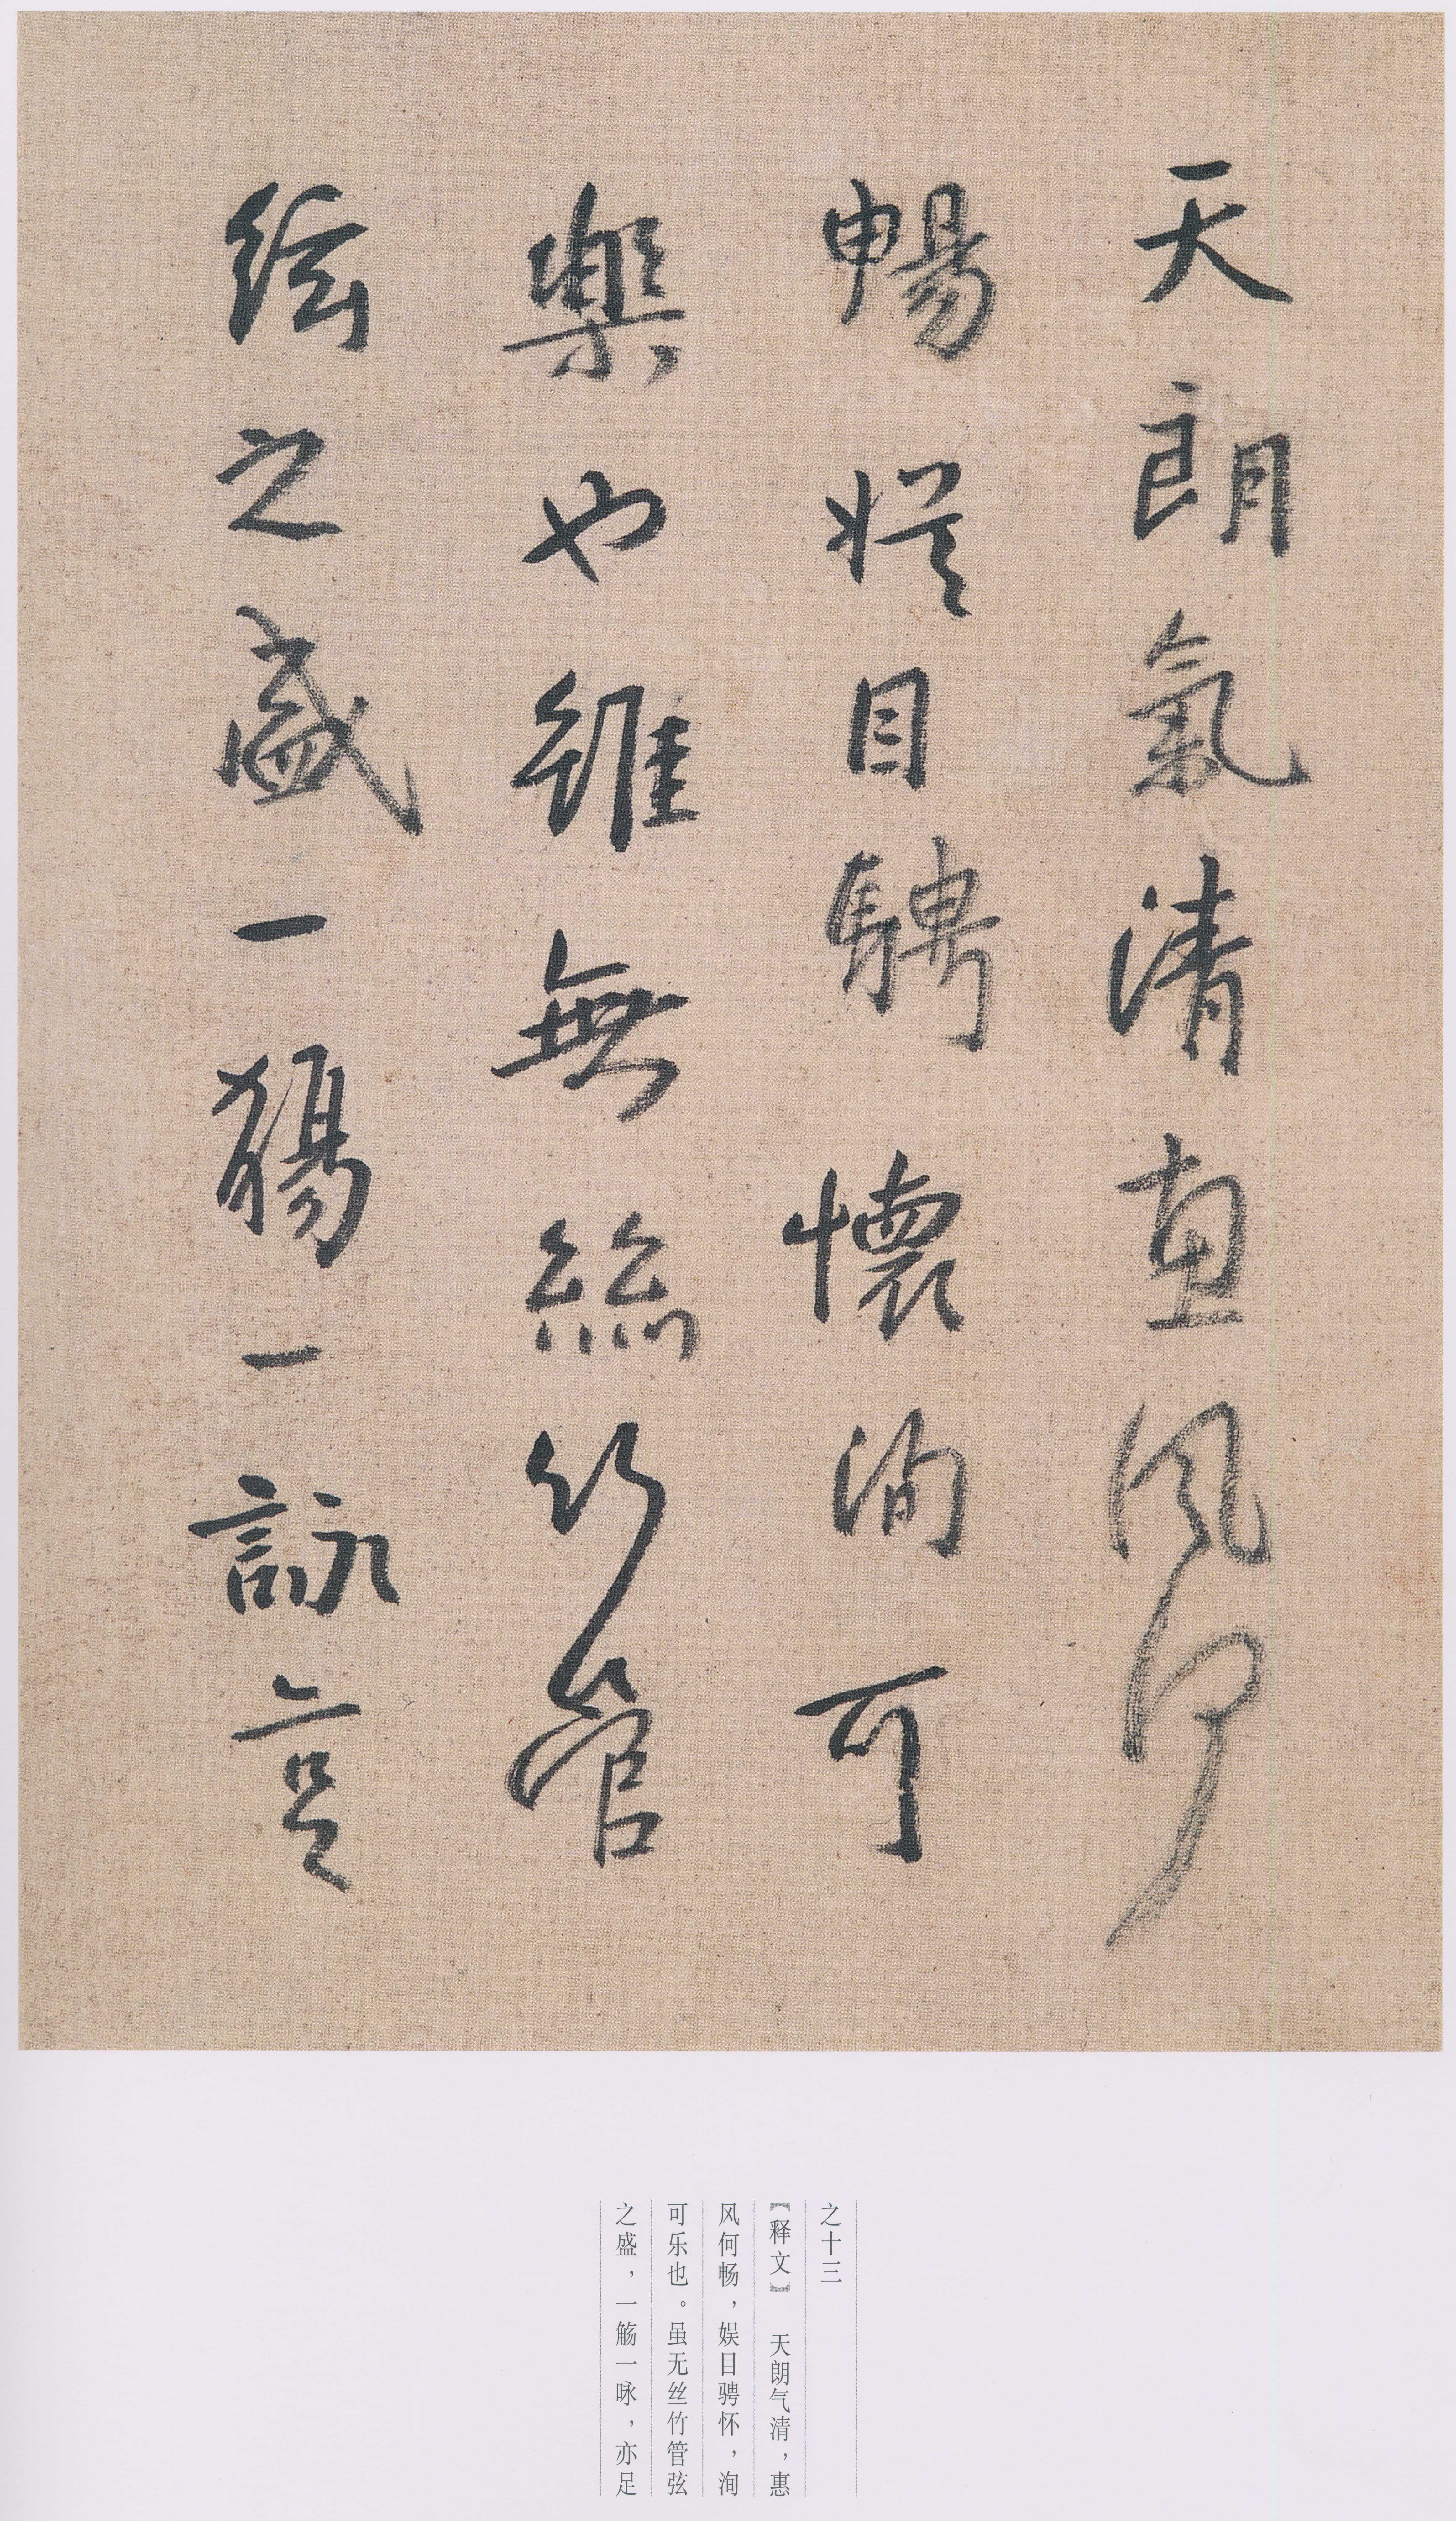 天朗氣清惠風何
暢娛目騁懷洵可
樂也雖無絲竹管
絃之盛一觴一詠亦足
之十三
【释文】 天朗气清，惠
风何畅，娱目骋怀，洵
可乐也。虽无丝竹管弦
之盛，一觞一咏，亦足